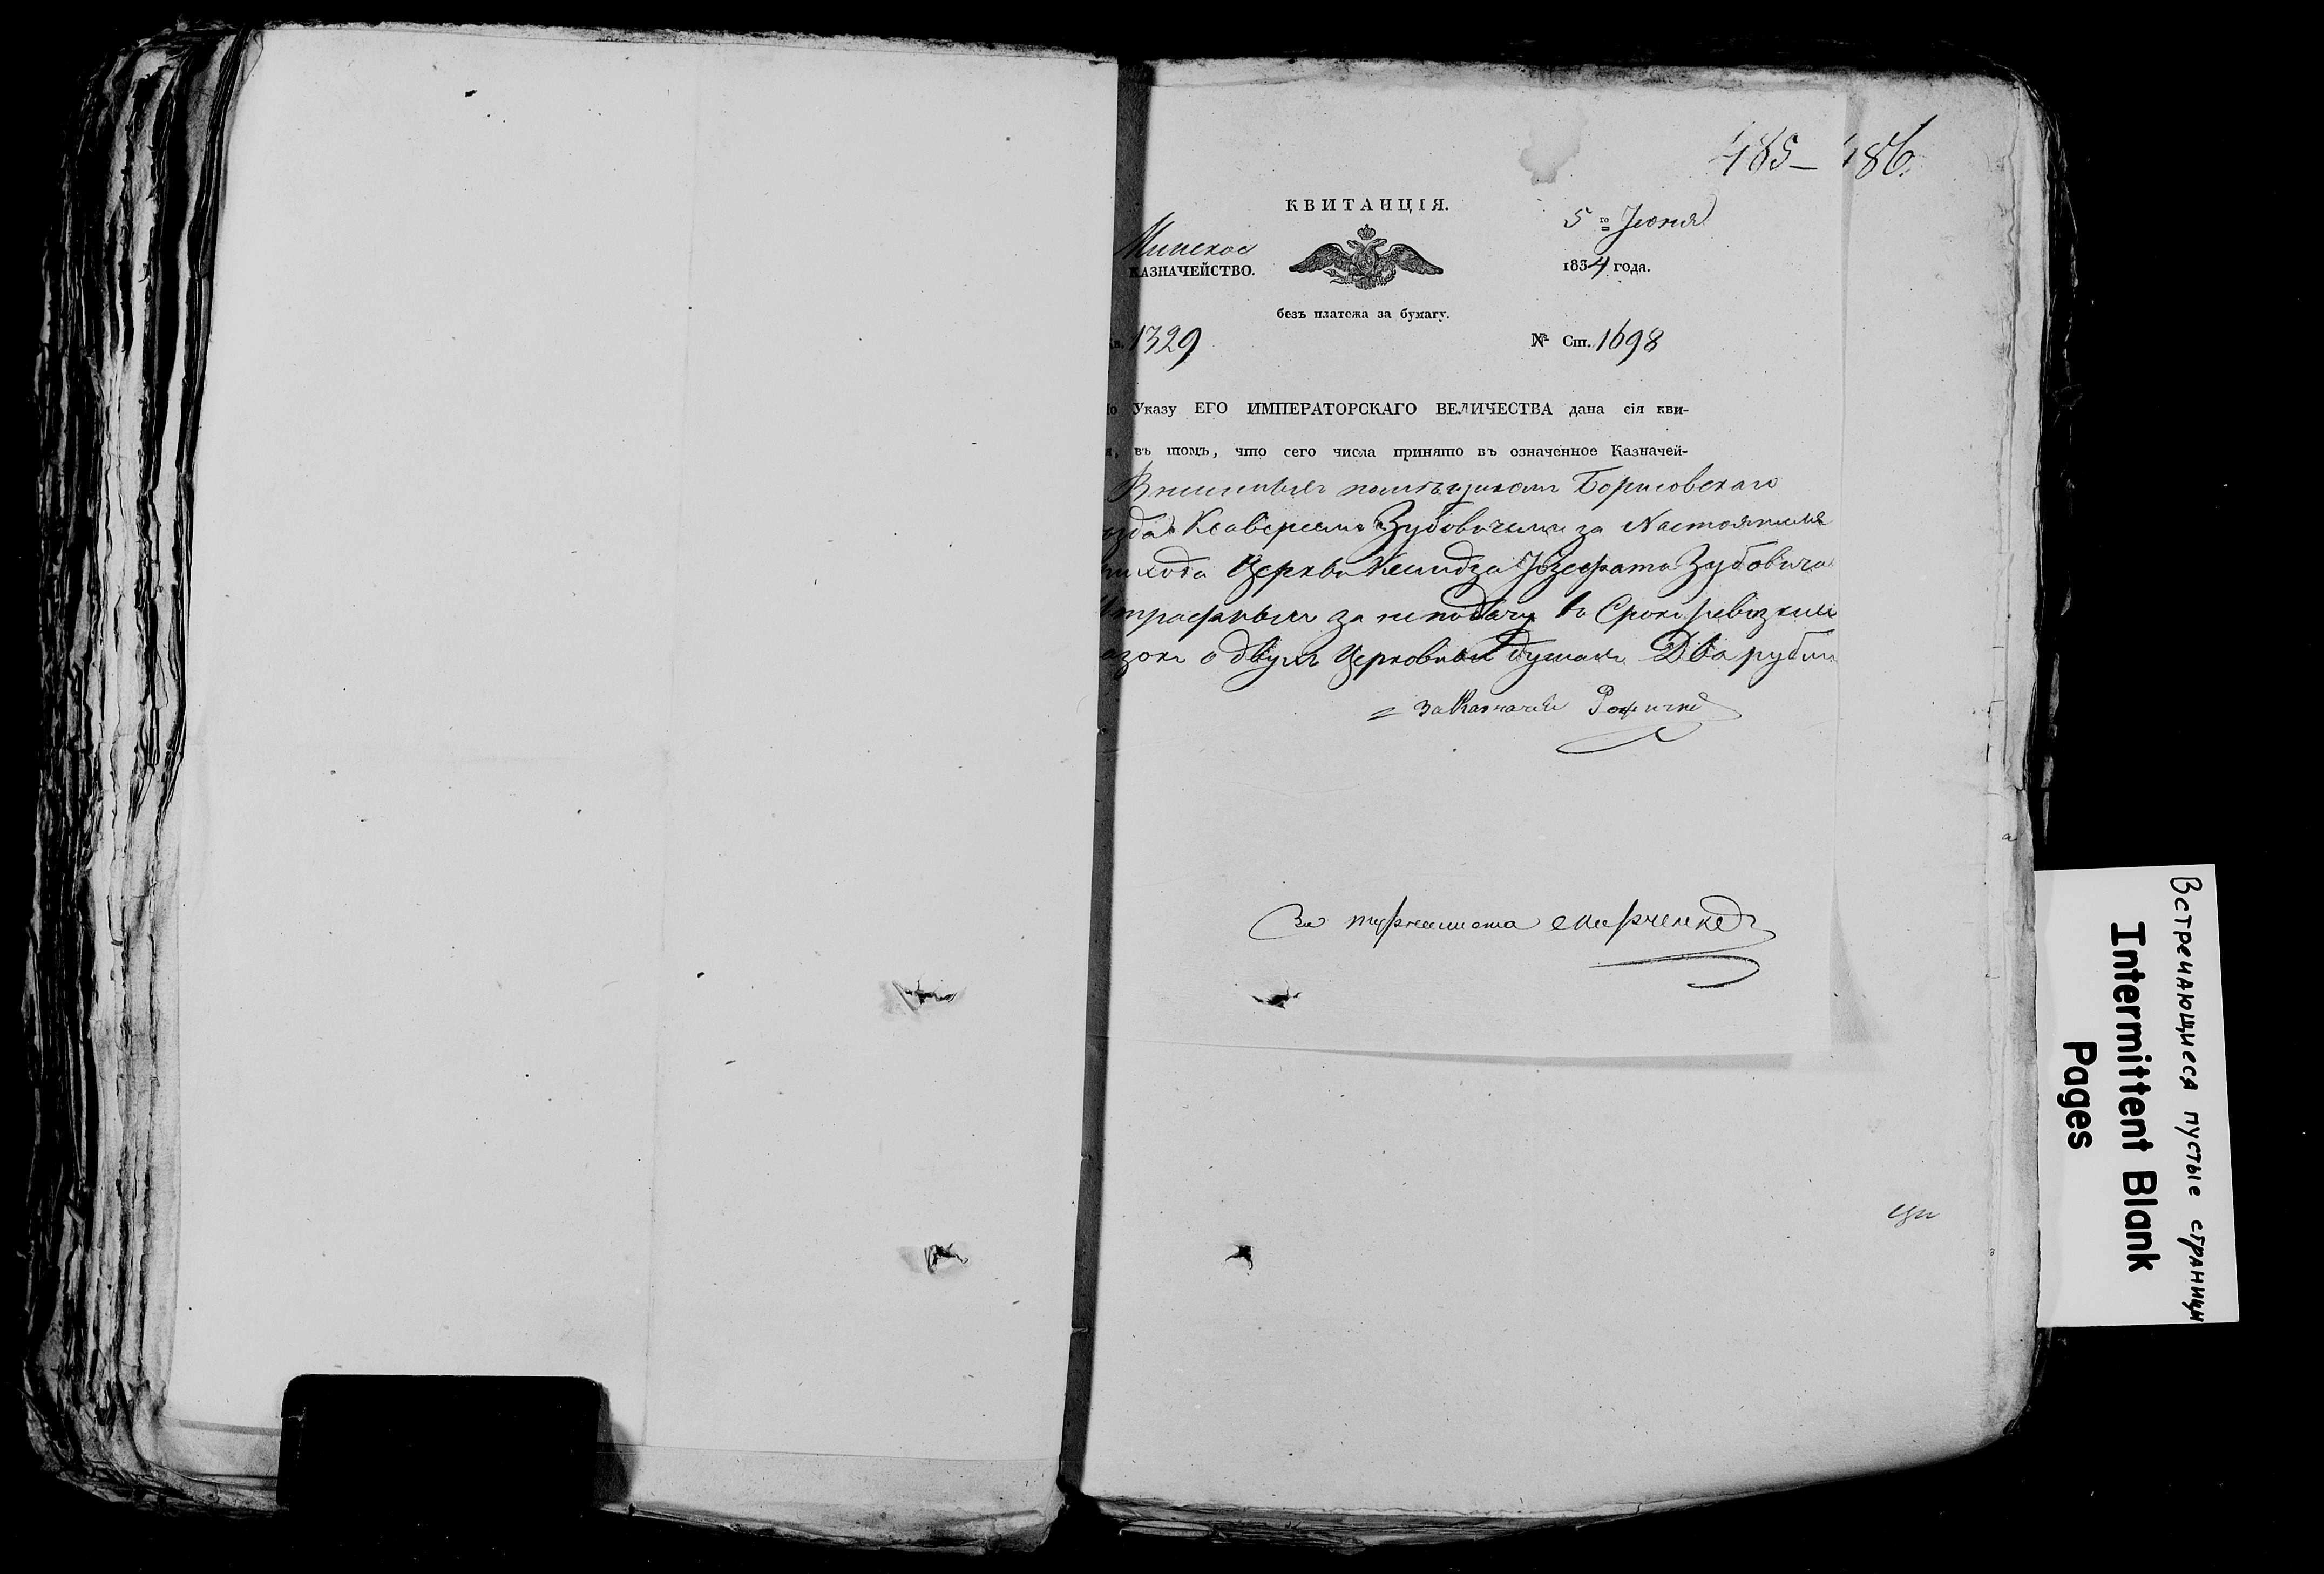 485–186.
КВИТАНЦІЯ.
5го Іюня
Минское
КАЗНАЧЕЙСТВО.
1834 года.
безъ платежа за бумагу.
Кв. 1329
№ Ст. 1698
По Указу ЕГО ИМПЕРАТОРСКАГО ВЕЛИЧЕСТВА дана сія кви-
я, въ томъ, что сего числа принято въ означенное Казначей-
помѣщикомъ Борисовскаго
Зубовичемъ за Настоятеля
Церкви Ксендза Іозефата Зубовича
за неподачу въ Срокъ ревизкии
азокъ о двухъ Церковныхъ душахъ Два рубли
За Казначея
За журналиста
Встречающиеся пустые страницы
Intermittent Blank
Pages